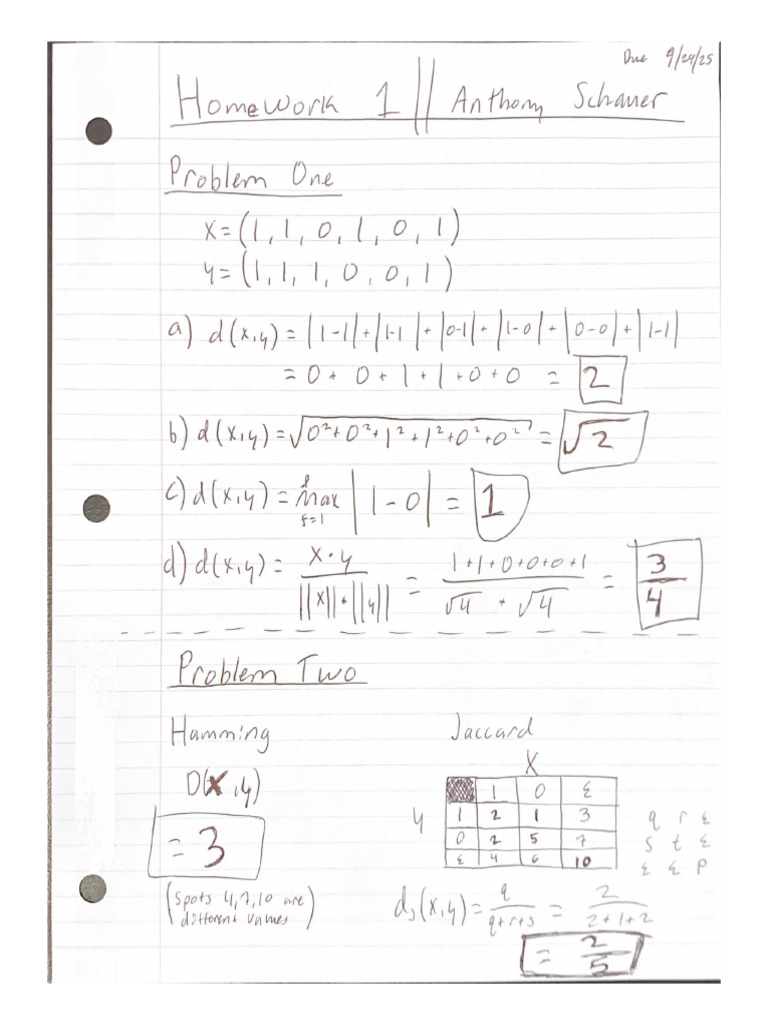 Due 9/24/25
Homework 1 || Anthony Schauer
Problem One
x = (1, 1, 0, 1, 0, 1)
y = (1, 1, 1, 0, 0, 1)
a) d(x,y) = |1-1| + |1-1| + |0-1| + |1-0| + |0-0| + |1-1|
= 0 + 0 + 1 + 1 + 0 + 0 = 2
b) d(x,y) = √(0² + 0² + 1² + 1² + 0² + 0²) = √2
c) d(x,y) = max f=1 |1-0| = 1
d) d(x,y) = x·y / ||x||·||y|| = 1+1+0+0+0+1 / √4 · √4 = 3/4
Problem Two
Hamming
D(x,y)
= 3
(Spots 4,7,10 are
different values)
Jaccard
X
y
1 0 Σ
1 2 1 3
0 2 5 7
Σ 4 6 10
q r Σ
s t Σ
Σ Σ P
dJ(x,y) = q / q+r+s = 2 / 2+1+2
= 2/5